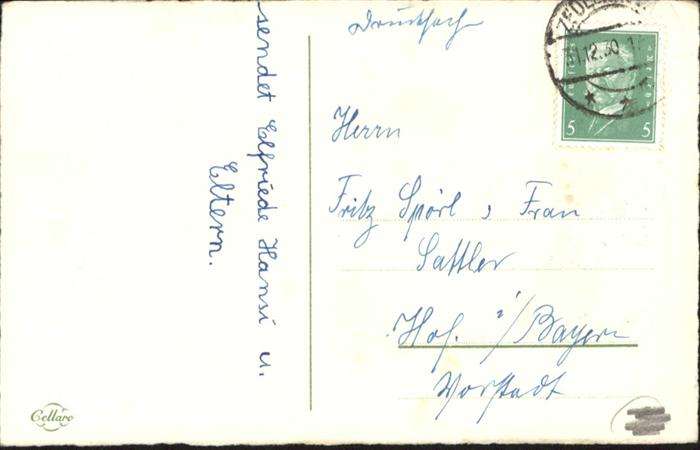 Drucksach
31.12.30
5 5
sendet Elfriede Hansi u.
Eltern.
Herrn
Fritz Spörl, Frau
Sattler
Hof. i/Bayern
Vorstadt
Cellaro